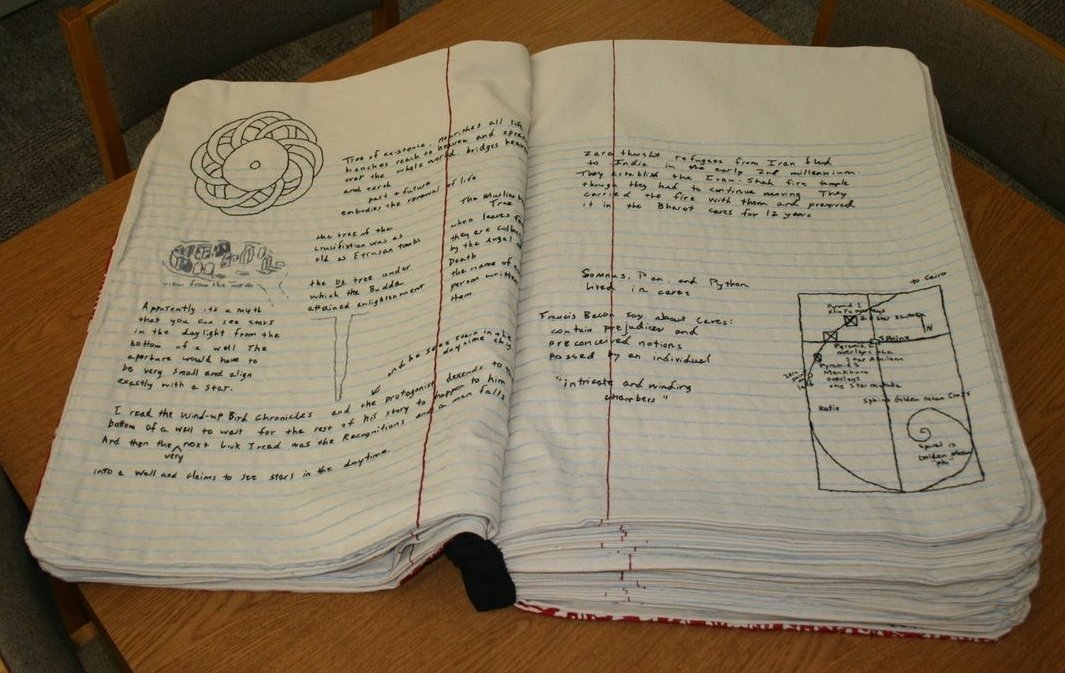 Tree of existence, nourishes all life
branches reach to heaven and
over the whole world bridges
and earth
past + future
embodies the renewal of life
The Muslim
Tree
when leaves
they are
by the angel
Death
the name of
person written
them
the tree of the
crucifixtion was as
old as Etrusan tombs
the Bo tree under
which the Budda
attained enlightenment
view from the north
Apparently its a myth
that you can see stars
in the daylight from the
bottom of a well The
aperture would have to
be very small and align
exactly with a star.
and he sees stars in the
daytime sky
I read the Wind-up Bird Chronicles and the protagonist descends to the
bottom of a well to wait for the rest of his story to happen to him
And then the very next book I read was the Recognitions and a man falls
into a well and claims to see stars in the daytime
Zara thusht refugees from Iran fled
to India in the early 2nd millennium.
They establish the Iran-Shah fire temple
though they had to continue moving They
carried the fire with them and preserved
it in the Bharot caves for 12 years
Somnus, Pan, and Python
lived in caves
Francis Bacon say about Caves:
contain prejudices and
preconceived notions
possed by an individual
"intricate and winding
chambers"
to Cairo
Pyramid 1
Khufu
N
Sphinx
Pyramid 2
overlays the
star Alnilam
Pyramid 3
Menkhara
overlays
one star mintaka
Sphinx Golden mean
Ratio
spiral is
Golden mean
"phi"